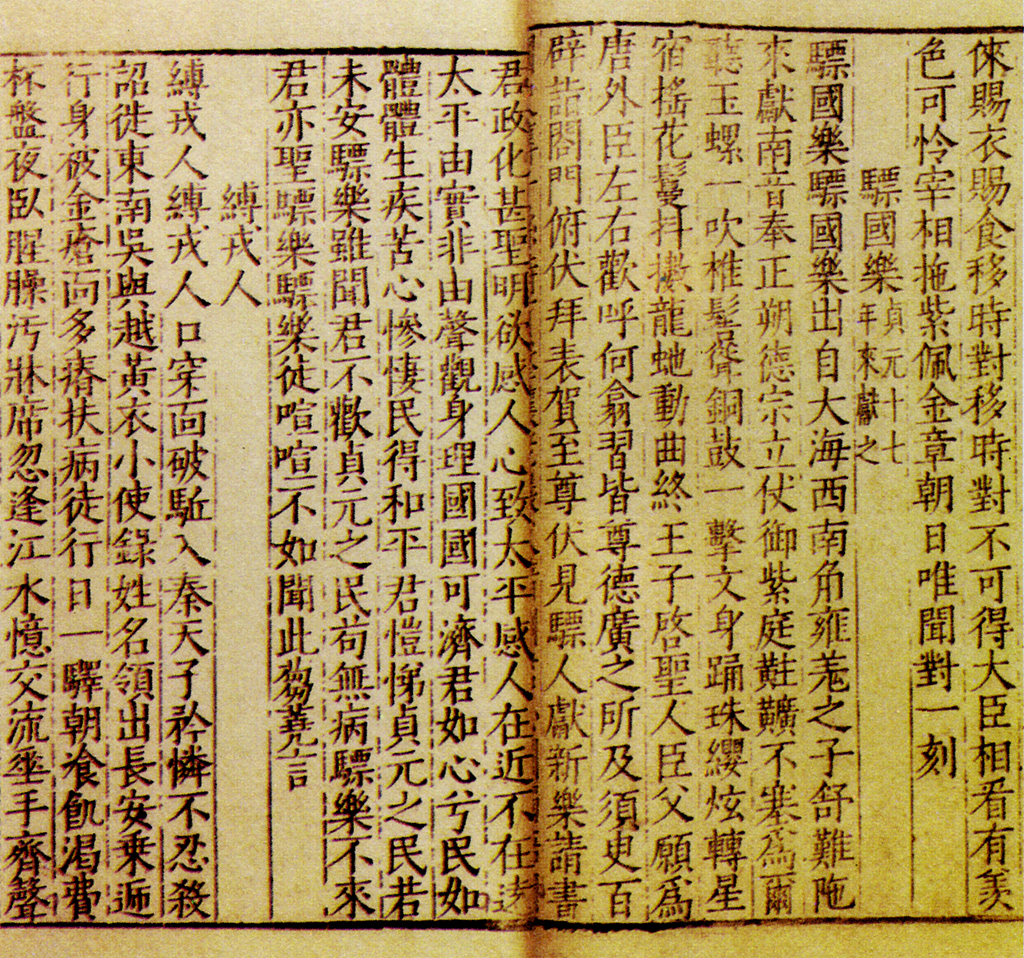 倈賜衣賜食移時對移時對不可得大臣相看有羡
色可怜宰相拖紫佩金章朝日唯聞對一刻
驃國樂貞元十七年來獻之
驃國樂驃國樂出自大海西南角雍羌之子舒難陁
來獻南音奉正朔德宗立仗御紫庭黈纊不塞為爾
聽玉螺一吹椎髻聳銅鼓一擊文身踊珠纓炫轉星
宿搖花鬘抖擻龍虵動曲終王子啓聖人臣父願為
唐外臣左右歡呼何翕習皆尊德廣之所及須臾百
辟詣閤門俯伏拜表賀至尊伏見驃人獻新樂請書
君政化甚聖明欲感人心致太平感人在近不在遠
太平由實非由聲觀身理國國可濟君如心兮民如
體體生疾苦心慘悽民得和平君愷悌貞元之民若
未安驃樂雖聞君不歡貞元之民苟無病驃樂不來
君亦聖驃樂驃樂徒喧喧不如聞此芻蕘言
縛戎人
縛戎人縛戎人口穿面破驅入秦天子矜憐不忍殺
詔徙東南吳與越黃衣小使錄姓名領出長安乘遞
行身被金瘡面多瘠扶病徒行日一驛朝飡飢渴費
杯盤夜臥腥臊汚牀席忽逢江水憶交流垂手齊聲